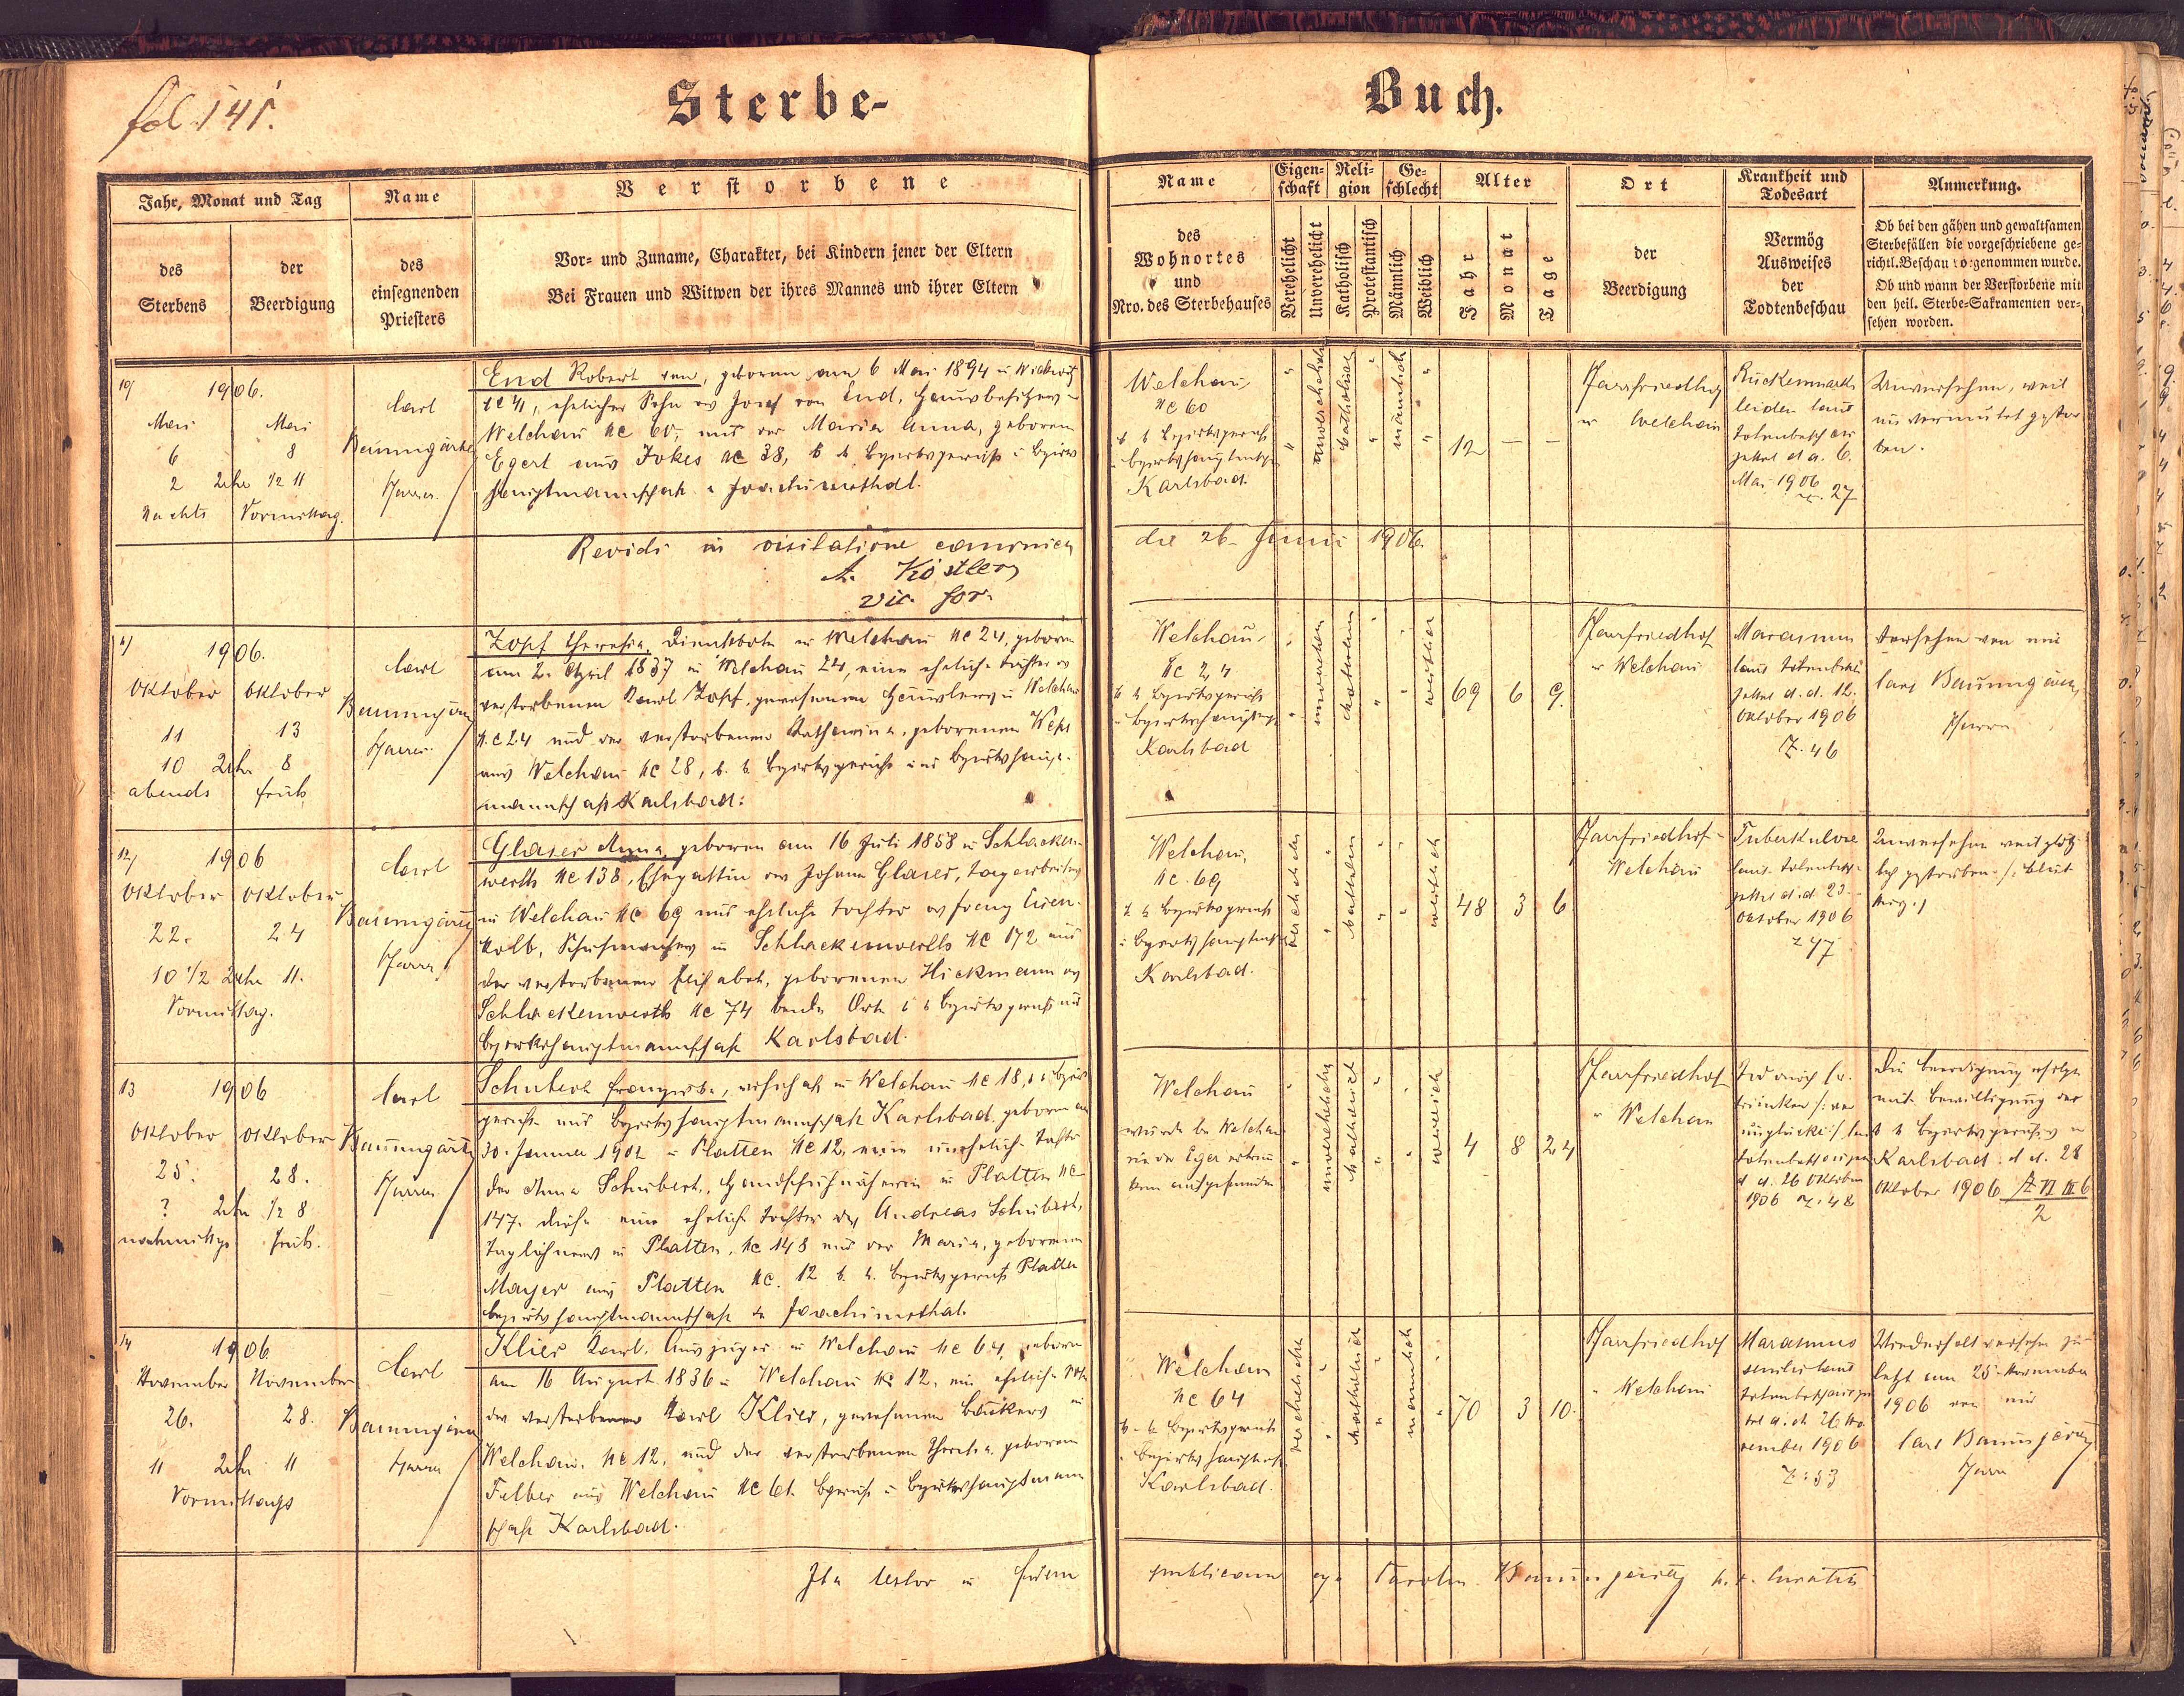 fol 141.
Sterbe-
Buch.
Jahr, Monat und Tag
des Sterbens
der Beerdigung
Name
des einsegnenden Priesters
Verstorbene
Vor- und Zuname, Charakter, bei Kindern jener der Eltern
Bei Frauen und Witwen der ihres Mannes und ihrer Eltern
Name
des
Wohnortes
und
Nro. des Sterbehauses
Eigen-
schaft
Verehelicht
Unverehelicht
Reli-
gion
Katholisch
Protestantisch
Ge-
schlecht
Männlich
Weiblich
Alter
Jahr
Monat
Tage
Ort
der
Beerdigung
Krankheit und
Todesart
Vermög
Ausweises
der
Todtenbeschau
Anmerkung.
Ob bei den gähen und gewaltsamen
Sterbefällen die vorgeschriebene ge-
richtl. Beschau vorgenommen wurde.
Ob und wann der Verstorbene mit
den heil. Sterbe-Sakramenten ver-
sehen worden.
10/
1906.
Mai
6
2 Uhr
Nachts
Mai
8
1/2 11
Vormittag.
Carl
Pfarrer
End Robert von, geboren am 6 Mai 1894 in
ehelicher Sohn des Josef von End, Hausbesitzer in
Welchau Nc 60, und der Maria Anna, geborenen
Egert aus Jokes Nc 38, k k Bezirksgericht
Joachimsthal.
Welchau
Nc 60
k k Bezirksgericht
Karlsbad.
unverehelicht
katholisch
männlich
12 — —
Pfarrfriedhof
Welchau
Rückenmark
leiden laut
6.
Mai 1906
27
Unversehen, weil
Revidi in visitatione canonica
A. Köstler
vic. for.
die 26. Junii 1906.
11/
1906.
Oktober
11
10 Uhr
abends
Oktober
13
8
früh
Carl
Pfarrer
Zopf Theresia, Dienstbote in Welchau Nc 24, geboren
am 2. April 1837 in Welchau 24, eine eheliche Tochter des
verstorbenen Karl Zopf, gewesenen Häuslers in Welchau
Nc 24 und der verstorbenen Katharina, geborenen
aus Welchau Nc 28, k. k. Bezirksgericht und Bezirkshaupt-
mannschaft Karlsbad.
Welchau,
Nc 24
k k Bezirksgericht
Karlsbad
weiblich
69 6 9.
Pfarrfriedhof
Welchau
Marasmus
laut
zettel d. d. 12.
Oktober 1906
Z. 46
Versehen von mir
Carl
Pfarrer
12/
1906
Oktober
22.
10 1/2 Uhr
Vormittag.
Oktober
24
11.
Carl
Pfarrer
Glaser Anna, geboren am 16 Juli 1858 in Schlacken-
werth Nc 138, Ehegattin des Johann Glaser, Tagarbeiters
in Welchau Nc 69 und eheliche Tochter des Franz Eisen-
kolb, Schuhmachers in Schlackenwerth Nc 172 und
der verstorbenen Elisabeth, geborenen Hickmann aus
Schlackenwerth Nc 74 beide Orte k k Bezirksgericht und
Bezirkshauptmannschaft Karlsbad.
Welchau,
Nc. 69
k k Bezirksgericht
Karlsbad.
verehelicht
weiblich
48 3 6
Pfarrfriedhof
Welchau
Tuberkulose
laut
zettel d. d. 23.
Oktober 1906
Z 47
Unversehen weil plötz-
lich gestorben
13
1906
Oktober
25.
? Uhr
nachmittags
Oktober
28.
1/2 8
früh.
Carl
Pfarrer
Schubert Franziska, in Welchau Nc 18, k k Bezirks
gericht und Bezirkshauptmannschaft Karlsbad, geboren am
30. Jänner 1902 in Platten Nc 12, eine uneheliche Tochter
der Anna Schubert, Handschuhnäherin in Platten Nc
147. diese eine eheliche Tochter des Andreas Schubert,
Taglöhners in Platten, Nc 148 und der Maria, geborenen
Mayer aus Platten Nc. 12 k. k. Bezirksgericht Platten
Bezirkshauptmannschaft in Joachimsthal.
Welchau
wurde bei Welchau
in der Eger
aufgefunden
unverehelicht
katholisch
weiblich
4 8 24
Pfarrfriedhof
Welchau
Tod durch Er-
trinken /: ver
unglückt :/ laut
d. d. 26 Oktober
1906 Z. 48
Die Beerdigung erfolgte
mit Bewilligung des
k k Bezirksgerichtes in
Karlsbad d. d. 28
Oktober 1906
14
1906
November
26.
11 Uhr
Vormittags
November
28.
11
Carl
Pfarrer
Klier Karl, Auszügler in Welchau Nc 64, geboren
am 16 August 1836 in Welchau Nc 12, ein ehelicher Sohn
des verstorbenen Karl Klier, gewesenen Bäckers in
Welchau, Nc 12, und der verstorbenen Theresia, geborenen
Felber aus Welchau Nc 61. Bezirkshauptmann
schaft Karlsbad.
Welchau
Nc 64
k. k. Bezirksgericht
Karlsbad.
verehelicht
katholisch
männlich
70 3 10.
Pfarrfriedhof
Welchau
Marasmus
senilis laut
d. d. 26 No
vember 1906
Z: 53
Wiederholt versehen zu-
letzt am 25. November
1906 von mir
Carl
Pfarrer
Ita testor in fidem
publicam